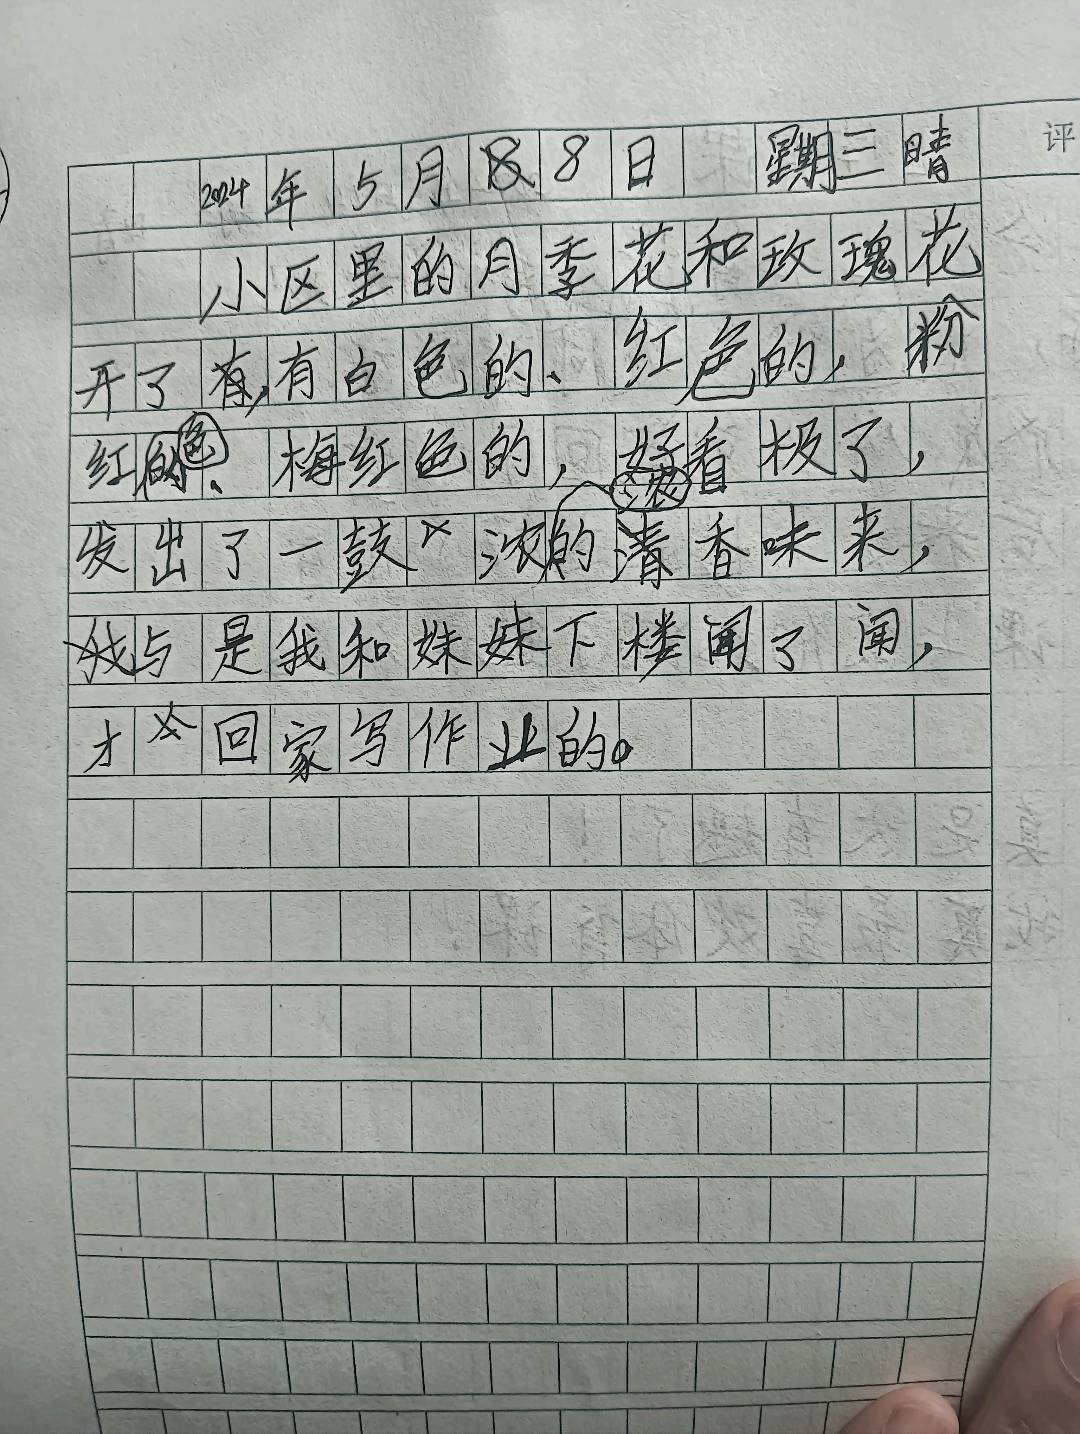 评
2024年5月8日 星期三 晴
小区里的月季花和玫瑰花
开了,有白色的、红色的,粉
红色的、梅红色的,好看极了,
发出了一鼓浓浓的清香味来,
与是我和妹妹下楼闻了闻,
才回家写作业的。